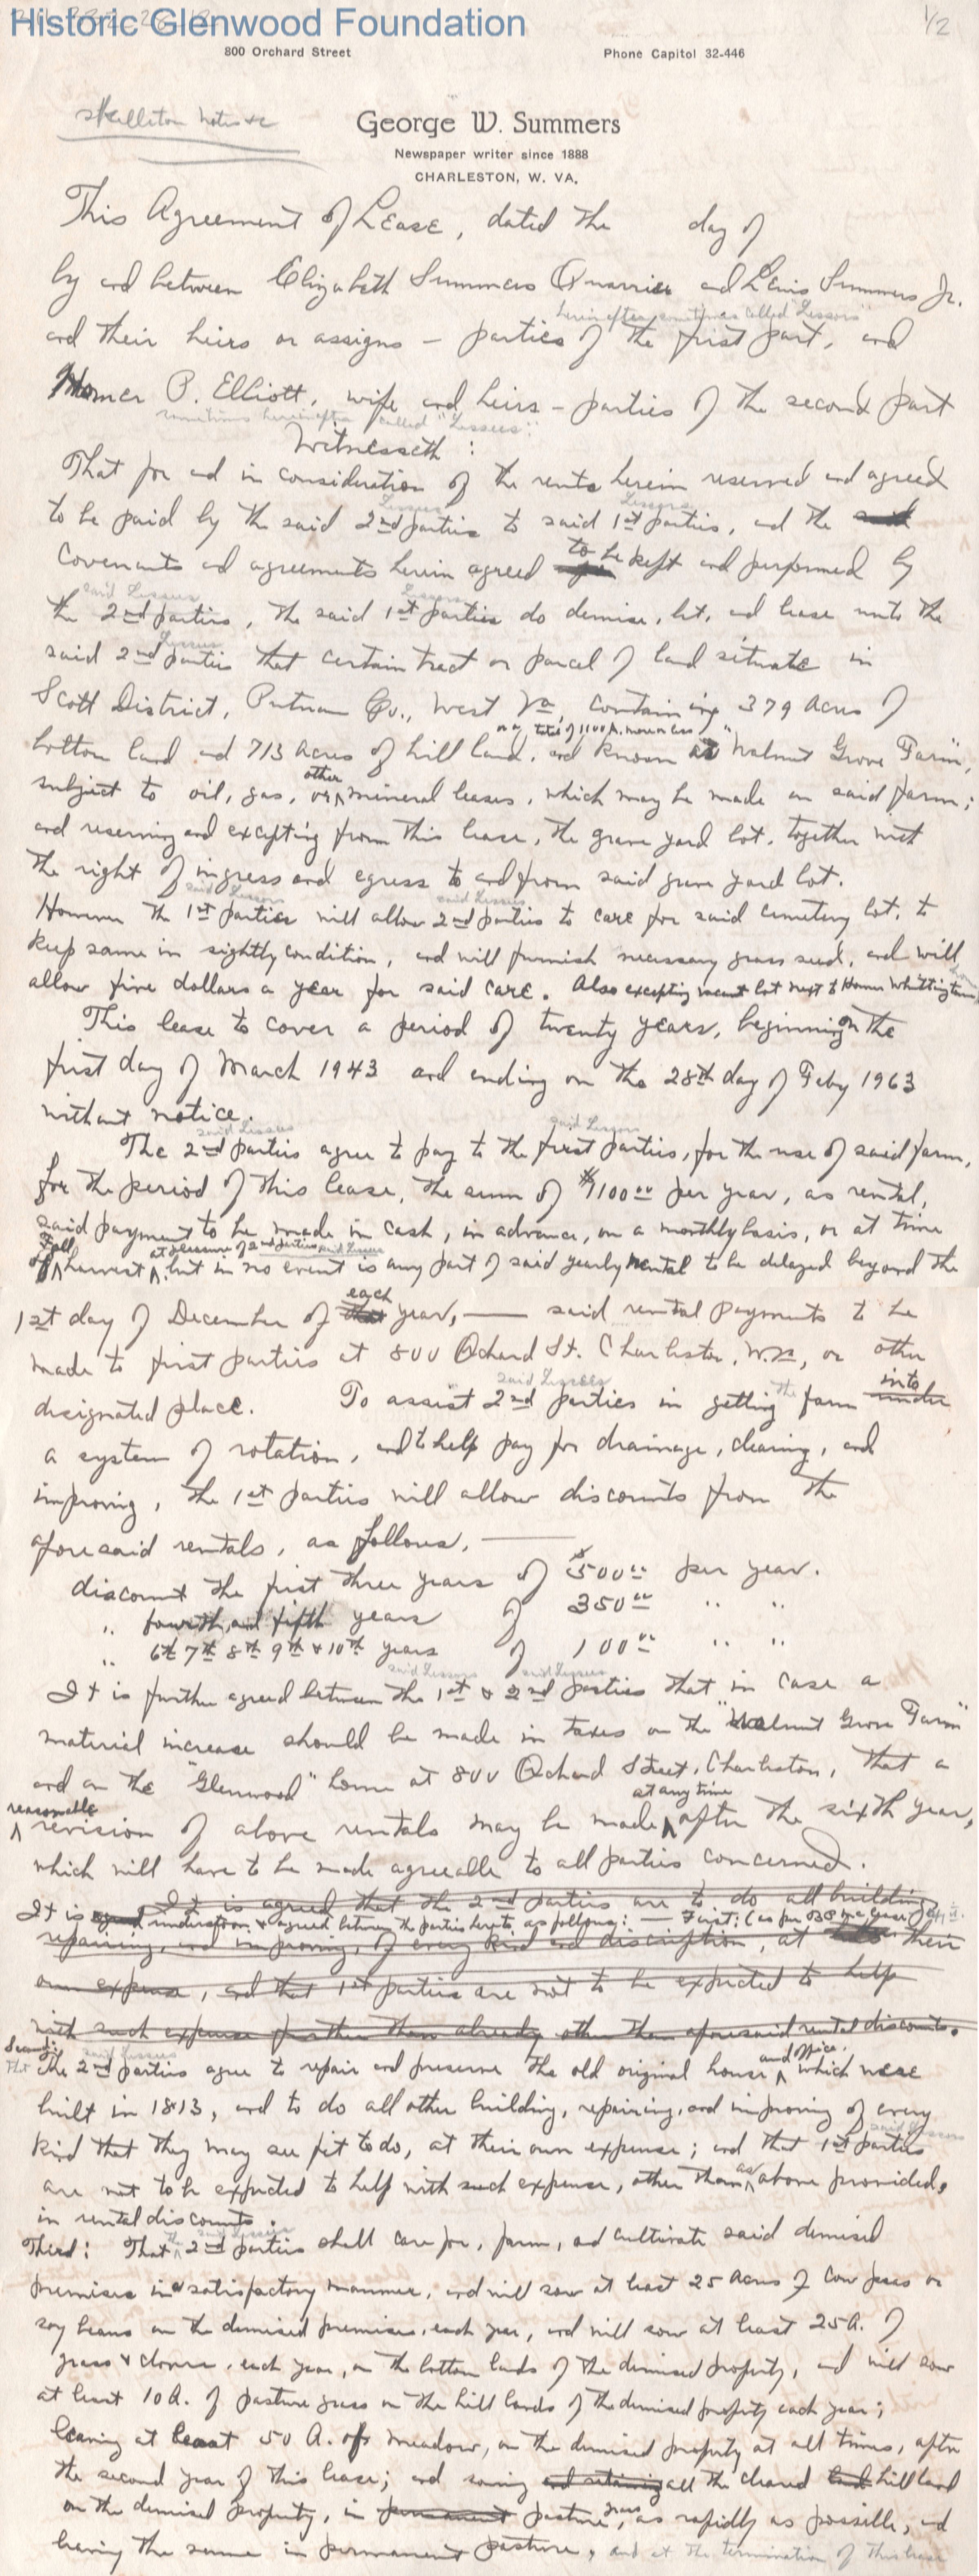 Historic Glenwood Foundation
1/2
800 Orchard Street Phone Capitol 32-446
skelliton notes &c
George W. Summers
Newspaper writer since 1888
CHARLESTON, W. VA.
This Agreement of Lease, dated the day of
by and between Elizabeth Summers Quarrier and Lewis Summers Jr.
hereinafter sometimes called "Lessors"
and their heirs or assigns – parties of the first part, and
Homer P. Elliott, wife and heirs – parties of the second part
sometimes hereinafter called "Lessees":
Witnesseth :
That for and in consideration of the rents herein reserved and agreed
Lessees Lessors
to be paid by the said 2nd parties to said 1st parties, and the said
to be
Covenants and agreements herein agreed kept and performed by
said Lessees Lessors
the 2nd parties, the said 1st parties do demise, let, and lease unto the
Lessees
said 2nd parties that certain tract or parcel of land situate in
Scott District, Putnam Co., West Va, containing 379 Acres of
or a total of 1100 A. more or less
bottom land and 713 Acres of hill land, and known as "Walnut Grove Farm",
other
subject to oil, gas, or ^ mineral leases, which may be made on said farm;
and reserving and excepting from this lease, the grave yard lot, together with
the right of ingress and egress to and from said grave yard lot.
said Lessors said Lessees
However the 1st parties will allow 2nd parties to care for said cemetery lot, to
keep same in sightly condition, and will furnish necessary grass seed, and will
allow five dollars a year for said care. Also excepting lot next to Homer Whittington
This lease to cover a period of twenty years, beginning on the
first day of March 1943 and ending on the 28th day of Feby 1963
without notice.
said Lessees said Lessors
The 2nd parties agree to pay to the first parties, for the use of said farm,
for the period of this lease, the sum of $1100.00 per year, as rental,
said payment to be made in cash, in advance, on a monthly basis, or at time
Fall at pleasure of 2nd parties said Lessees
of ^ harvest ^, but in no event is any part of said yearly rental to be delayed beyond the
each
1st day of December of that year, — said rental payments to be
made to first parties at 800 Orchard St. Charleston, W. Va, or other
said Lessees the into
designated place. To assist 2nd parties in getting farm under
a system of rotation, and to help pay for drainage, clearing, and
improving, the 1st parties will allow discounts from the
aforesaid rentals, as follows, —
discount the first three years of $500.00 per year.
" fourth and fifth years of 350.00 " "
" 6th 7th 8th 9th & 10th years of 100.00 " "
said Lessors said Lessees
It is further agreed between the 1st & 2nd parties that in case a
material increase should be made in taxes on the "Walnut Grove Farm"
and on the "Glenwood" home at 800 Orchard Street, Charleston, that a
reasonable at any time
^ revision of above rentals may be made ^ after the sixth year,
which will have to be made agreeable to all parties concerned.
It is agreed that the 2nd parties are to do all building,
It is understood & agreed between the parties hereto as follows: — First: (as per
repairing, and improving, of every kind and discription, at their
own expense, and that 1st parties are not to be expected to help
with such expense further than already other than aforesaid rental discounts.
Second: said Lessees and office
That the 2nd parties agree to repair and preserve the old original house ^ which were
built in 1813, and to do all other building, repairing, and improving of every
said Lessors
kind that they may see fit to do, at their own expense; and that 1st parties
as
are not to be expected to help with such expense, other than ^ above provided,
in rental discounts.
the said Lessees
Third: That 2nd parties shall care for, farm, and cultivate said demised
premises in a satisfactory manner, and will sow at least 25 Acres of Cow peas or
soy beans on the demised premises, each year, and will sow at least 25 A. of
grass & clover, each year, on the bottom lands of the demised property, and will sow
at least 10 A. of pasture grass on the hill lands of the demised property each year;
leaving at least 50 A. of meadow, on the demised property at all times, after
the second year of this lease; and sowing and retaining all the cleared land hill land
grass
on the demised property, in permanent pasture, as rapidly as possible, and
leaving the same in permanent pasture, and at the termination of this lease